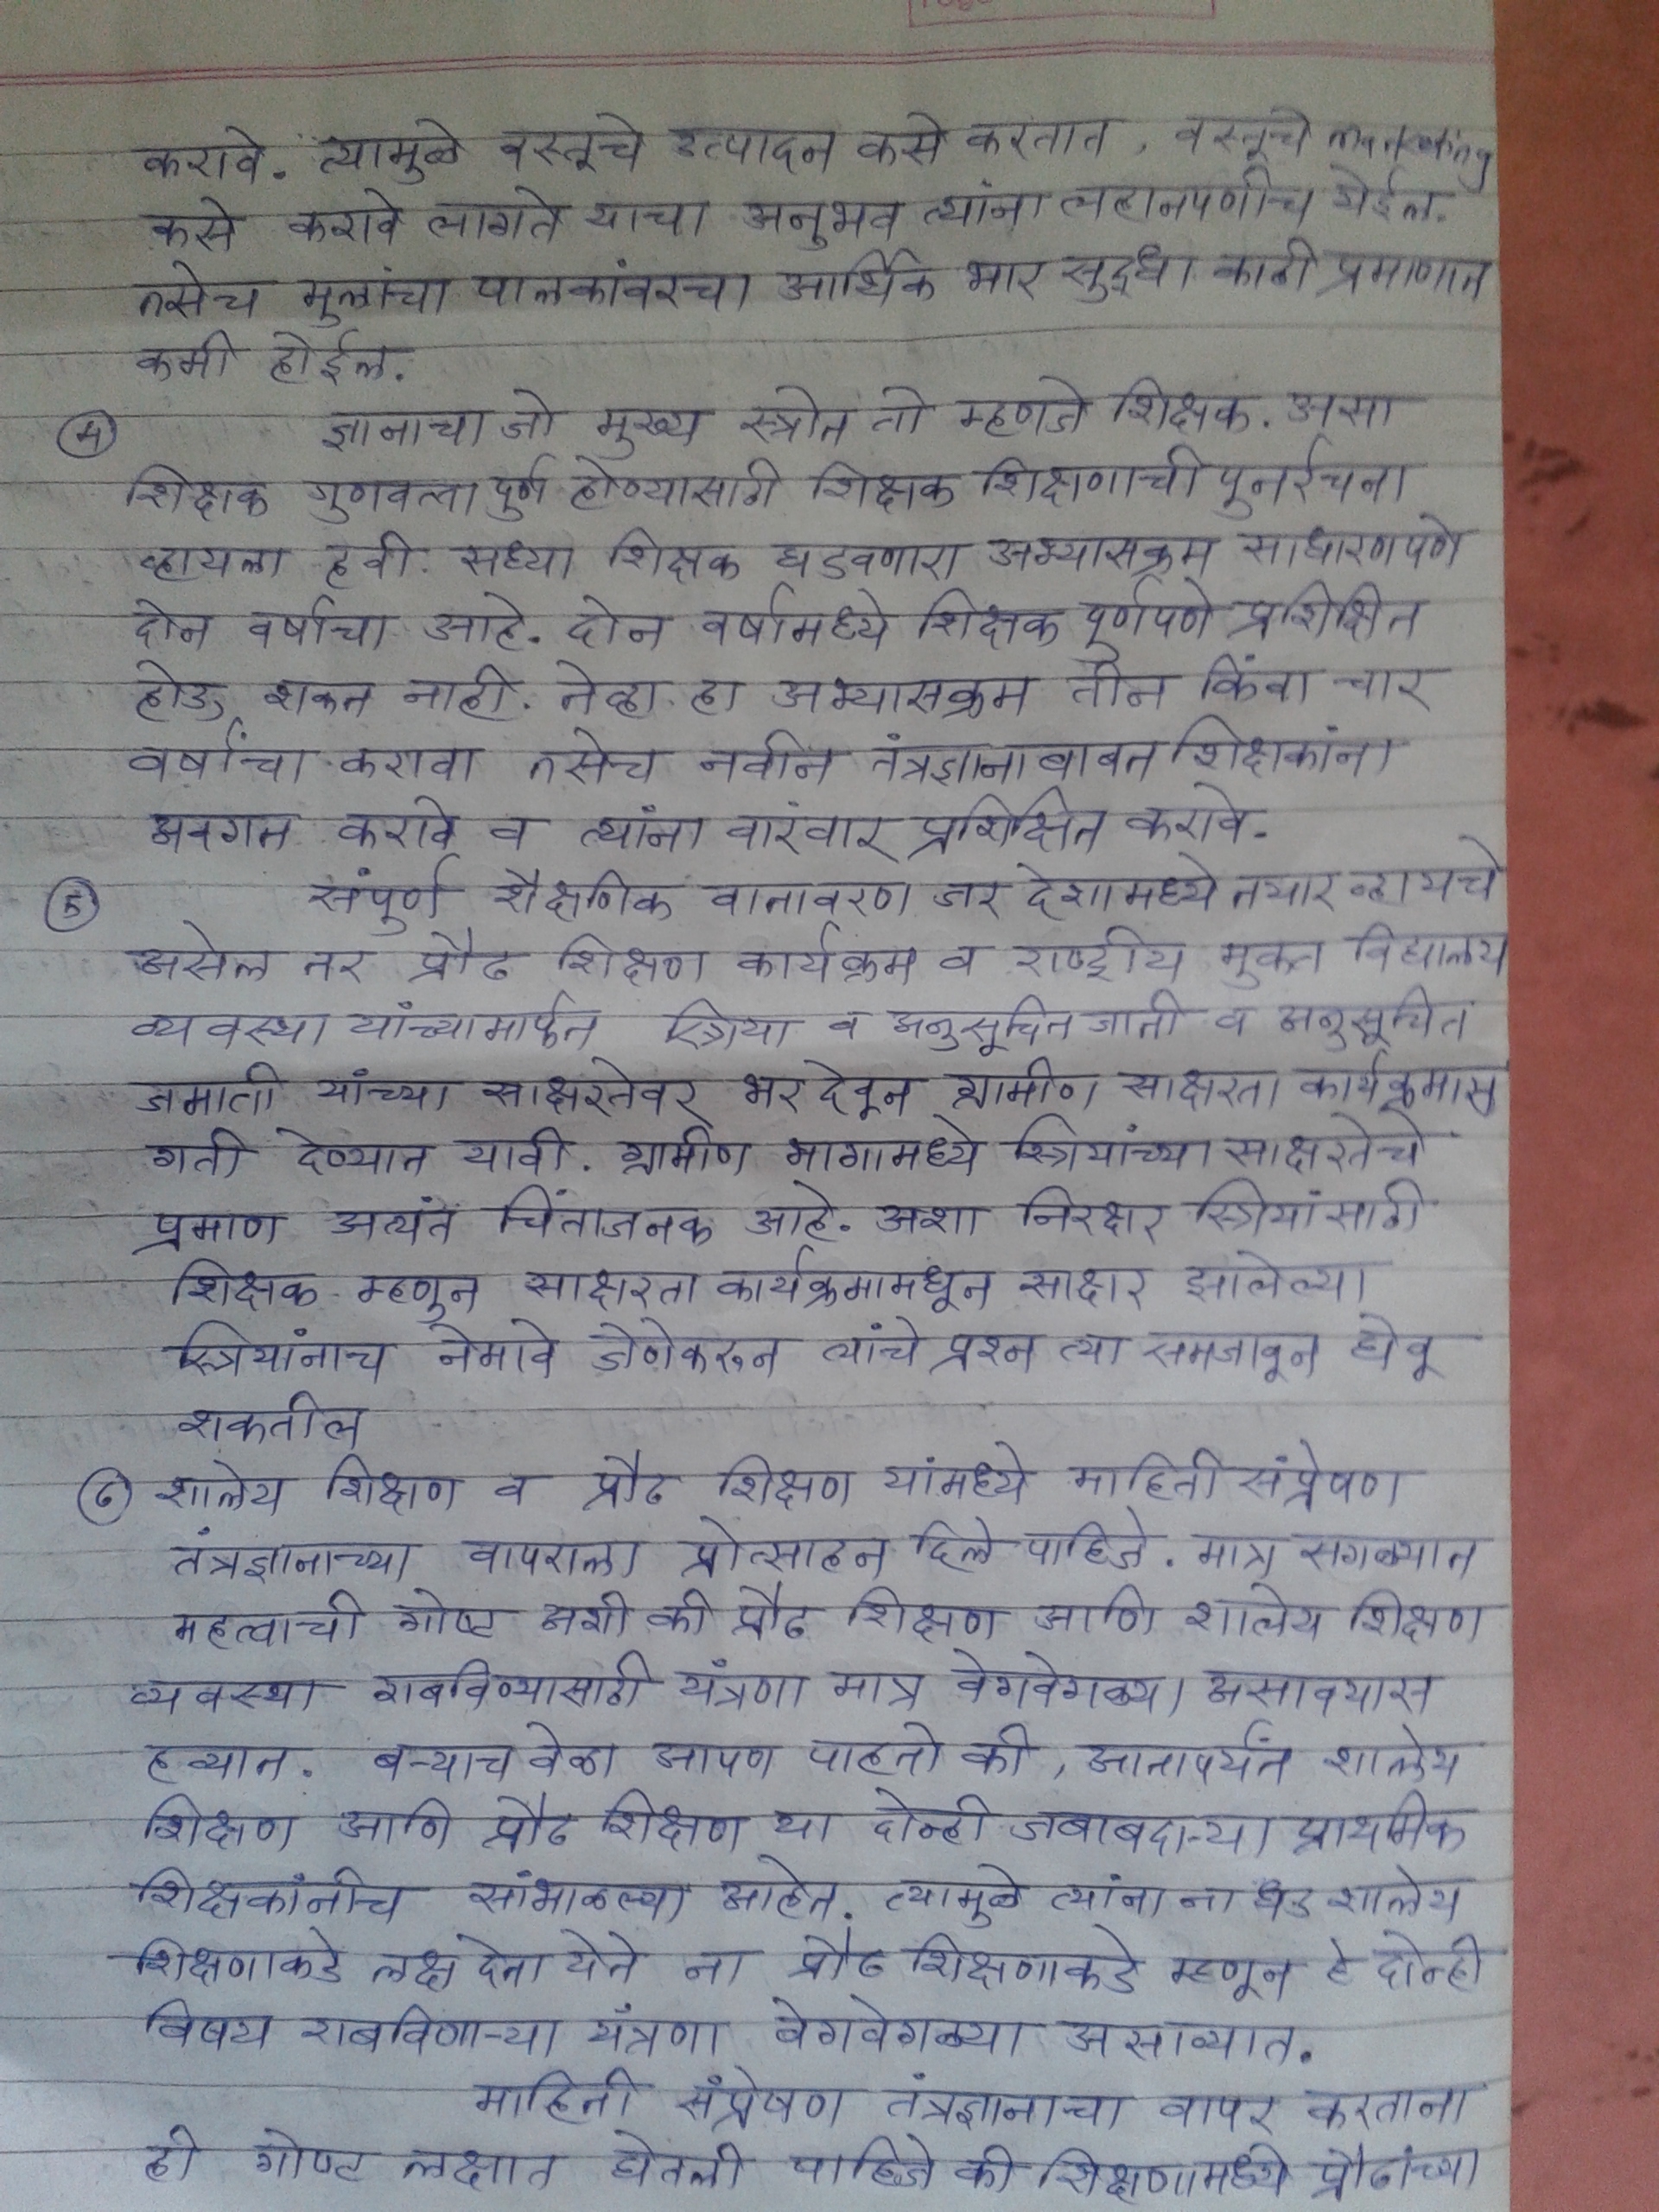 करावे. त्यामुळे वस्तूचे उत्पादन कसे करतात, वस्तूचे marketing
कसे करावे लागते याचा अनुभव त्यांना लहानपणीच येईल.
तसेच मुलांचा पालकांवरचा आर्थिक भार सुद्धा काही प्रमाणात
कमी होईल.
ज्ञानाचा जो मुख्य स्त्रोत तो म्हणजे शिक्षक. असा
शिक्षक गुणवत्तापुर्ण होण्यासाठी शिक्षक शिक्षणाची पुनर्रचना
व्हायला हवी. सध्या शिक्षक घडवणारा अभ्यासक्रम साधारणपणे
दोन वर्षाचा आहे. दोन वर्षामध्ये शिक्षक पूर्णपणे प्रशिक्षित
होऊ शकत नाही. तेव्हा हा अभ्यासक्रम तीन किंवा चार
वर्षांचा करावा तसेच नवीन तंत्रज्ञानाबाबत शिक्षकांना
अवगत करावे व त्यांना वारंवार प्रशिक्षित करावे.
संपुर्ण शैक्षणिक वातावरण जर देशामध्ये तयार व्हायचे
असेल तर प्रौढ शिक्षण कार्यक्रम व राष्ट्रीय मुक्त विद्यालय
व्यवस्था यांच्यामार्फत स्त्रिया व अनुसूचित जाती व अनुसूचित
जमाती यांच्या साक्षरतेवर भर देवून ग्रामीण साक्षरता कार्यक्रमास
गती देण्यात यावी. ग्रामीण भागामध्ये स्त्रियांच्या साक्षरतेचे
प्रमाण अत्यंत चिंताजनक आहे. अशा निरक्षर स्त्रियांसाठी
शिक्षक म्हणुन साक्षरता कार्यक्रमामधून साक्षर झालेल्या
स्त्रियांनाच नेमावे जेणेकरुन त्यांचे प्रश्न त्या समजावून घेवू
शकतील
६ शालेय शिक्षण व प्रौढ शिक्षण यांमध्ये माहिती संप्रेषण
तंत्रज्ञानाच्या वापराला प्रोत्साहन दिले पाहिजे. मात्र सगळ्यात
महत्वाची गोष्ट अशी की प्रौढ शिक्षण आणि शालेय शिक्षण
व्यवस्था राबविण्यासाठी यंत्रणा मात्र वेगवेगळ्या असावयास
हव्यात. बऱ्याच वेळा आपण पाहतो की, आतापर्यंत शालेय
शिक्षण आणि प्रौढ शिक्षण या दोन्ही जबाबदाऱ्या प्राथमिक
शिक्षकांनीच सांभाळल्या आहेत. त्यामुळे त्यांना ना धड शालेय
शिक्षणाकडे लक्ष देता येते ना प्रौढ शिक्षणाकडे म्हणून हे दोन्ही
विषय राबविणाऱ्या यंत्रणा वेगवेगळ्या असाव्यात.
माहिती संप्रेषण तंत्रज्ञानाचा वापर करताना
ही गोष्ट लक्षात घेतली पाहिजे की शिक्षणामध्ये प्रौढांच्या